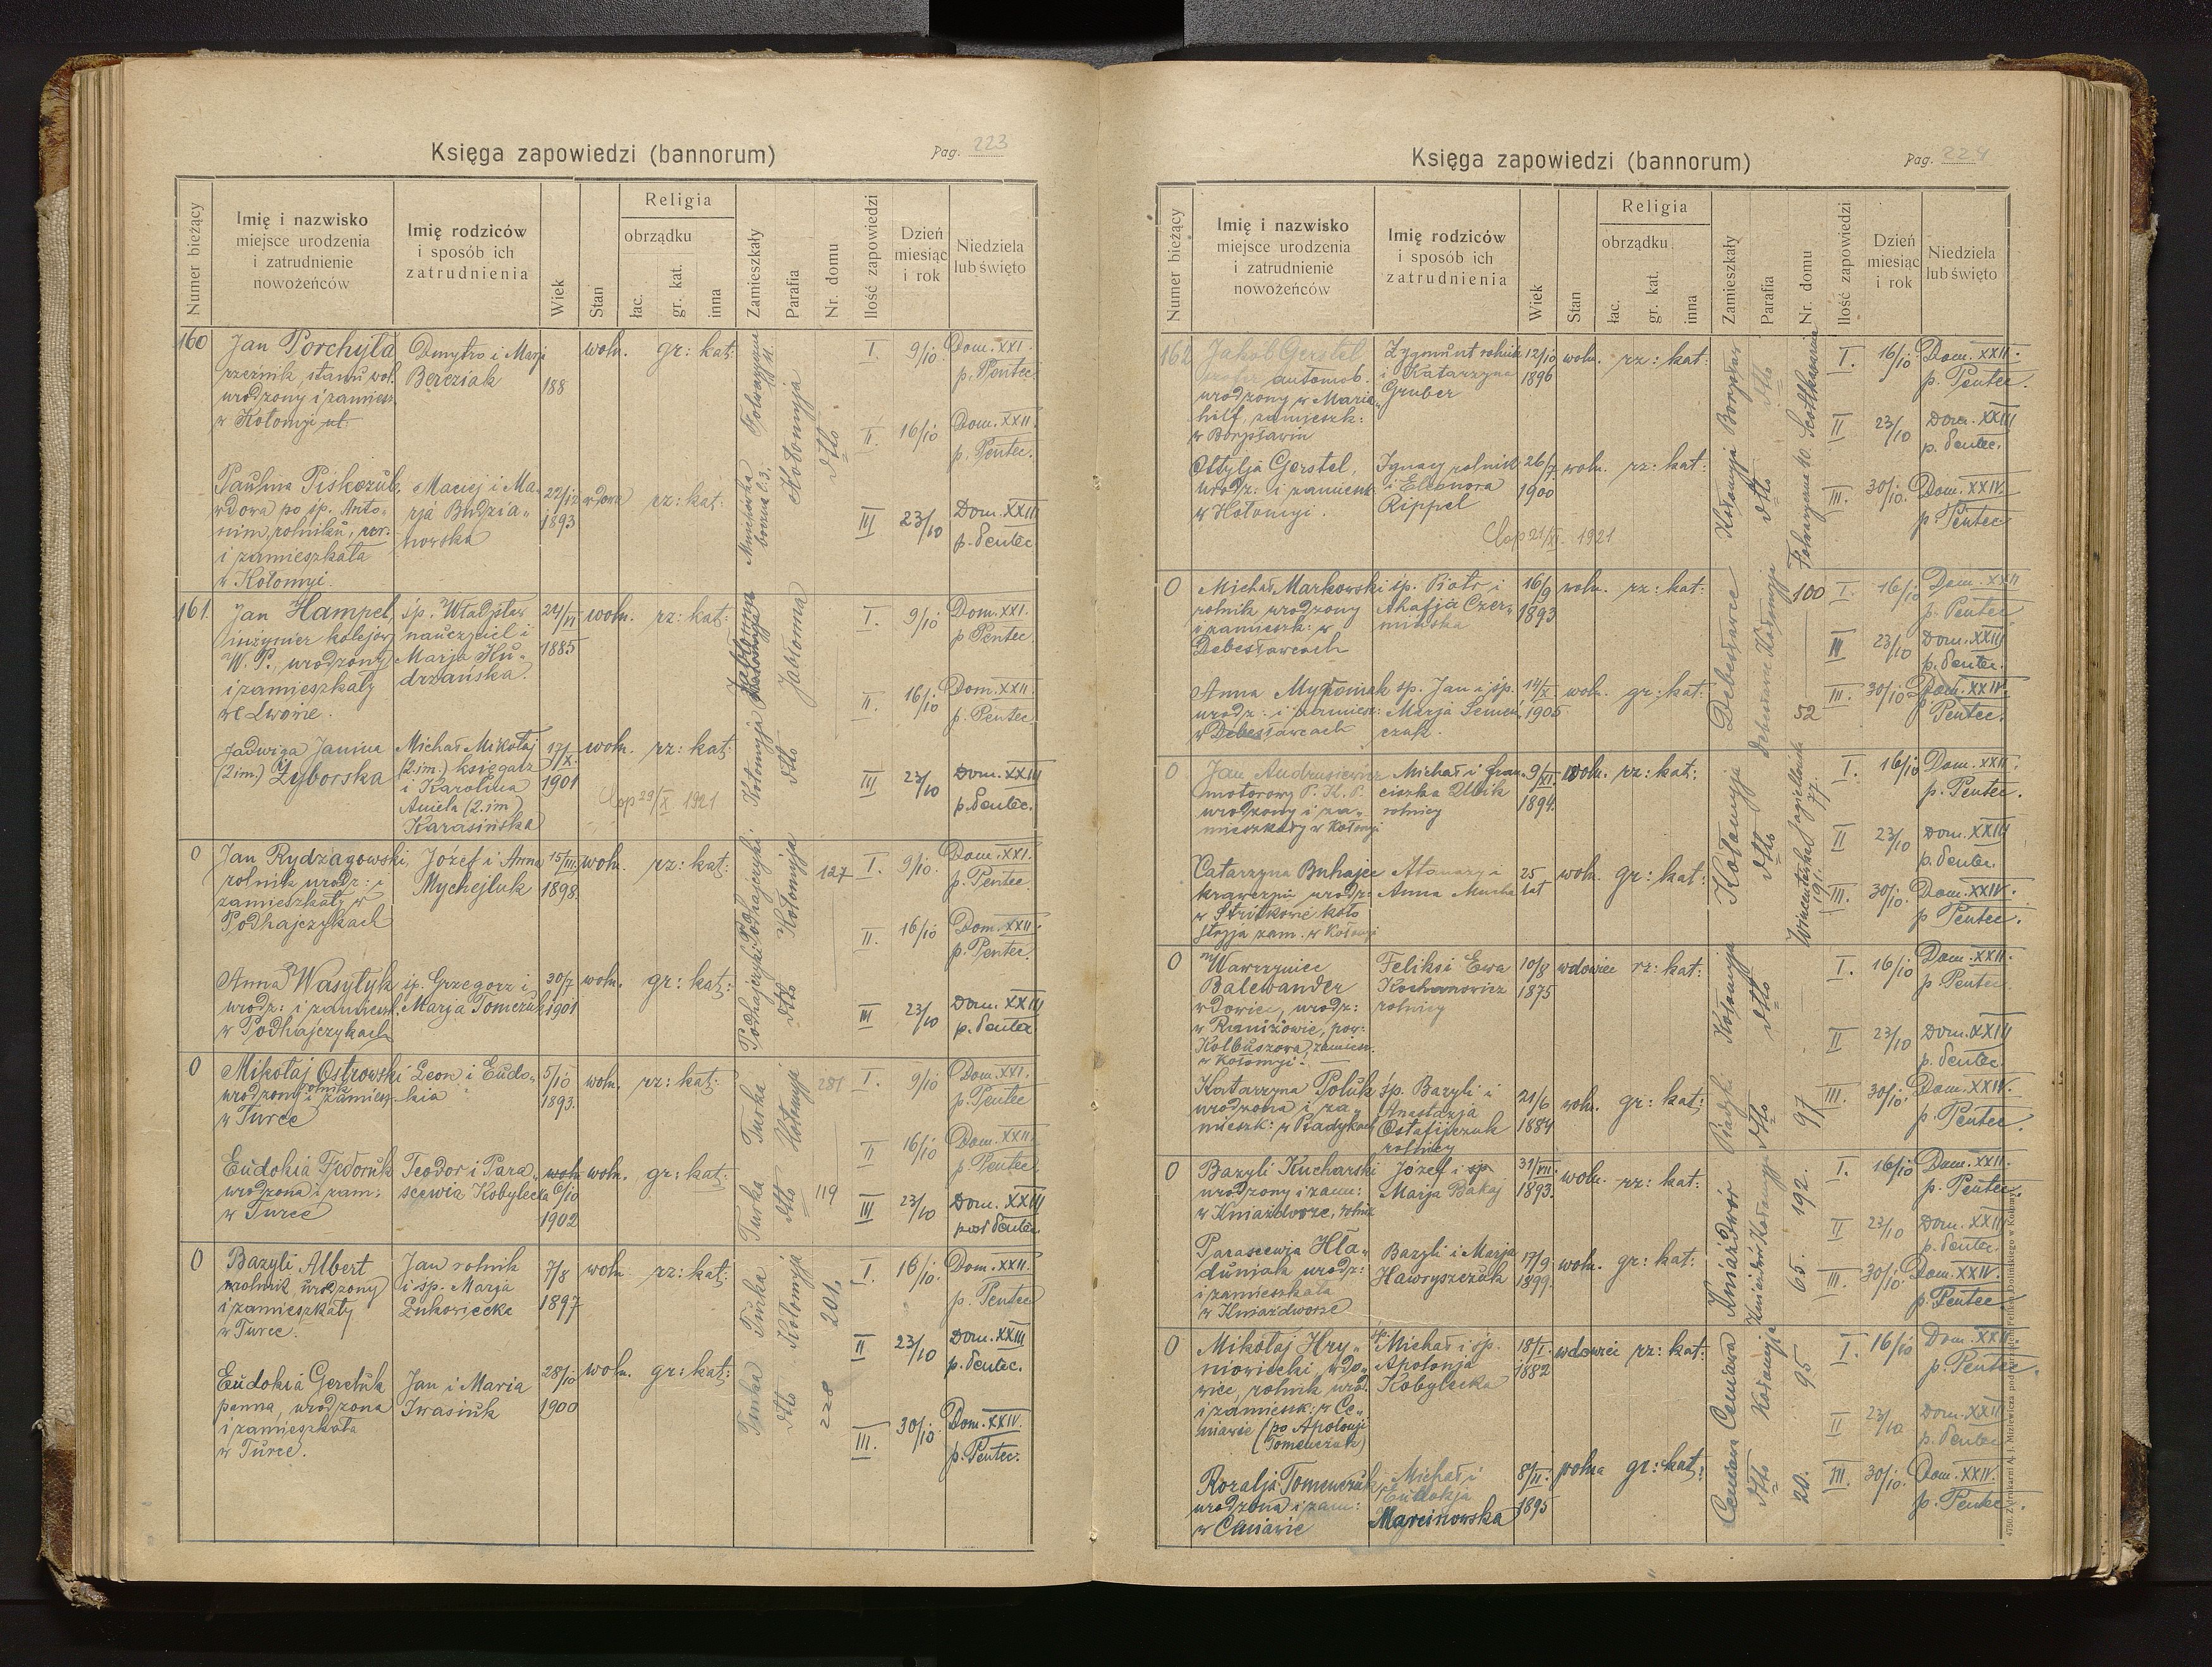 Księga zapowiedzi (bannorum)
Pag. 223
Numer bieżący
Imię i nazwisko
miejsce urodzenia
i zatrudnienie
nowożeńców
Imię rodziców
i sposób ich
zatrudnienia
Wiek
Stan
Religia
obrządku
łac.
gr. kat.
inna
Zamieszkały
Parafia
Nr. domu
Ilość zapowiedzi
Dzień
miesiąc
i rok
Niedziela
lub święto
160 Jan Porchyła Dmytro i Marja woln. gr: kat: I. 9/10 Dom. XXI.
rzeźnik, stanu wol. Bereziak 188 p. Pentec.
urodzony i zamiesz.
w Kołomyi ul. II. 16/10 Dom. XXII.
p. Pentec.
Paulina Piskozub, Maciej i Ma- 22/12 wdowa rz: kat: Kołomyja dtto
wdowa po śp. Anto- rja Budzia- 1893 III 23/10 Dom. XXIII
nim, rolniku, ur. nowska p. Pentec.
i zamieszkała
w Kołomyi.
161. Jan Hampel, śp. Władysław 24/VI woln. rz: kat: Jabłonna I. 9/10 Dom. XXI.
inżynier kolejow. nauczyciel i 1885 p Pentec.
W. P., urodzony Marja Hu-
i zamieszkały drzańska. II. 16/10 Dom. XXII.
we Lwowie. p. Pentec
Jadwiga Janina Michał Mikołaj 17/X. woln. rz: kat: Kołomyja dtto
(2 im.) Żyborska (2.im.) księgarz 1901 III 23/10 Dom. XXIII
i Karolina 29/X 1921 p. Pentec.
Aniela (2. im)
Karasińska
0 Jan Rydzagowski, Józef i Anna 15/III. woln. rz: kat: Podhajczyki Kołomyja 127 I. 9/10. Dom. XXI.
rolnik urodz: i Mychejluk 1898. p. Pentec.
zamieszkały w
Podhajczykach II. 16/10 Dom. XXII.
p. Pentec.
Anna Wasyłyk śp. Grzegorz i 30/7 woln. gr: kat: Podhajczyki dtto
urodz: i zamieszk. Marja Tomczuk 1901 III 23/10 Dom. XXIII
w Podhajczykach p. Pentec
0 Mikołaj Ostrowski Leon i Eudo- 5/10 woln. rz: kat: Turka Kołomyja 281 I. 9/10 Dom. XXI.
rolnik
urodzony i zamiesz. kia 1893. p. Pentec
w Turce II 16/10 Dom. XXII
p Pentec.
Eudokia Fedoruk Teodor i Para- woln woln. gr: kat: Turka dtto 119
urodzona i zam: scewia Kobylecka 6/10 III 23/10 Dom. XXIII
w Turce 1902 post Pentec
0 Bazyli Albert Jan rolnik 7/8 woln. rz: kat: Turka Kołomyja 201, I. 16/10. Dom. XXII.
rolnik urodzony i śp. Marja 1897 p. Pentec
i zamieszkały Łukowiecka
w Turce. II 23/10 Dom. XXIII
p. Pentec.
Eudokia Gereluk Jan i Maria 28/10 woln. gr: kat: Turka dtto 228
panna, urodzona Iwasiuk 1900 III. 30/10 Dom. XXIV.
i zamieszkała p. Pentec.
w Turce.
Księga zapowiedzi (bannorum)
Pag. 224
Numer bieżący
Imię i nazwisko
miejsce urodzenia
i zatrudnienie
nowożeńców
Imię rodziców
i sposób ich
zatrudnienia
Wiek
Stan
Religia
obrządku
łac.
gr. kat.
inna
Zamieszkały
Parafia
Nr. domu
Ilość zapowiedzi
Dzień
miesiąc
i rok
Niedziela
lub święto
162 Jakob Gerstel Zygmunt rolnik 12/10 woln. rz: kat: Borysław dtto I. 16/10 Dom. XXII.
automob. i Katarzyna 1896 p. Pentec.
urodzony w Maria- Gruber
hilf, zamieszk: II 23/10 Dom. XXIII
w Borysławiu p. Pentec.
Ottylja Gerstel, Ignacy rolnik 26/7 woln. rz: kat: Kołomyja dtto
urodz: i zamieszk. i Eleonora 1900 III. 30/10. Dom. XXIV.
w Kołomyi. Rippel p. Pentec
1921
0 Michał Markowski śp. Piotr i 16/9 woln. rz: kat: Debesławce 100 I. 16/10 Dom. XXII
rolnik urodzony Ahafja Czer- 1893 p. Pentec
i zamieszk: w mińska
Debesławcach III 23/10 Dom. XXIII
p. Pentec.
Anna Myroniak śp. Jan i śp. 14/X. woln. gr: kat: 52 III. 30/10 Dom. XXIV.
urodz: i zamiesz: Marja Semen- 1905 Pentec.
w Debesławcach czuk.
0 Jan Andrusiewicz Michał i Fran- 9/XI. woln. rz: kat: Kołomyja dtto Jagiellońska 77. I. 16/10 Dom. XXII.
motorowy P. K. P. ciszka Ulbik 1894. p. Pentec.
urodzony i za- rolnicy
mieszkały w Kołomyi II 23/10 Dom. XXIII
p. Pentec.
Catarzyna Buhajec Atanazy i 25 woln. gr: kat:
krawczyni urodz: Anna Mucha lat III. 30/10. Dom. XXIV.
w Striłkowie koło p Pentec.
Stryja zam. w Kołomyi
0 Wawrzyniec Feliks i Ewa 10/8 wdowiec rz: kat: Kołomyja dtto I. 16/10 Dom. XXII.
Balewander Kochanowicz 1875 p. Pentec.
wdowiec, urodz: rolnicy
w Raniżowie, pow: II 23/10 Dom. XXIII
Kolbuszowa, zamiesz. p. Pentec.
w Kołomyi.
Katarzyna Poluk śp. Bazyli i 21/6 woln. gr: kat: dtto 97 III. 30/10. Dom. XXIV.
urodzona i za- Anastazja 1884 p. Pentec.
mieszk: w Piadykach Ostafijczuk
rolnicy
0 Bazyli Kucharski Józef i śp 31/VII. woln. rz: kat: Kniaźdwór 192. I. 16/10 Dom. XXII.
urodzony i zam: Marja Bakaj 1893. p. Pentec.
w Kniaźdworze, rolnik II 23/10 Dom. XXIII
p. Pentec.
Parascewja Hła- Bazyli i Marja 17/9 woln. gr: kat: 65.
duniak urodz: Hawryszczuk 1899 III. 30/10. Dom. XXIV.
i zamieszkała p. Pentec
w Kniaźdworze
0 Mikołaj Hry- śp. Michał i śp. 18/I. wdowiec rz: kat: Ceniawa Kołomyja 95 I. 16/10 Dom. XXII.
niowiecki, wdo- Apolonja 1882 p. Pentec.
wiec, rolnik urod. Kobylecka
i zamieszk: w Ce- II 23/10 Dom. XXIII
niawie (po Apolonji p. Pentec
Tomenczuk)
Rozalja Tomenczuk Michał i 8/II. wolna gr: kat: Ceniawa dtto 20. III. 30/10. Dom. XXIV.
urodzona i zam: Eudokja 1895 p. Pentec.
w Ceniawie Marcinowska